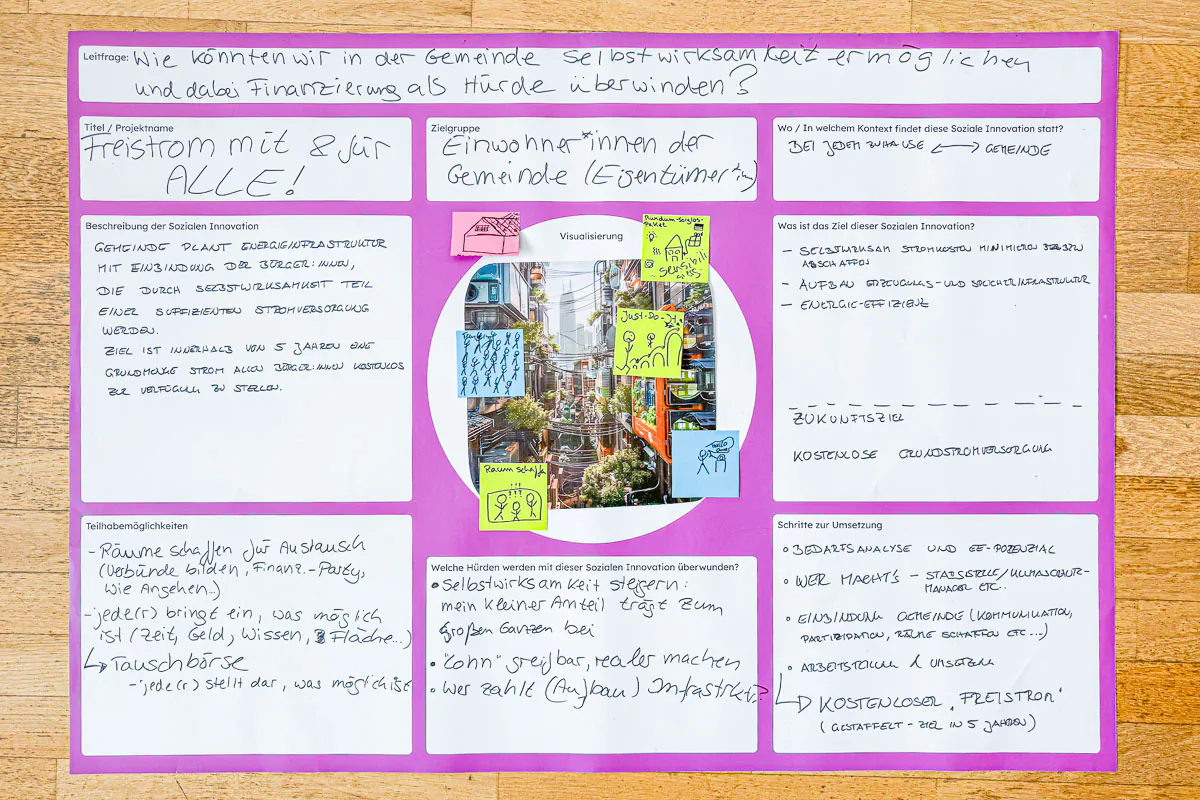 Leitfrage: Wie könnten wir in der Gemeinde Selbstwirksamkeit ermöglichen
und dabei Finanzierung als Hürde überwinden?
Titel / Projektname
Freistrom mit & für
ALLE!
Zielgruppe
Einwohner*innen der
Gemeinde (Eigentümer*in)
Wo / In welchem Kontext findet diese Soziale Innovation statt?
BEI JEDEM ZUHAUSE <—> GEMEINDE
Beschreibung der Sozialen Innovation
GEMEINDE PLANT ENERGIEINFRASTRUKTUR
MIT EINBINDUNG DER BÜRGER:INNEN,
DIE DURCH SELBSTWIRKSAMKEIT TEIL
EINER SUFFIZIENTEN STROMVERSORGUNG
WERDEN.
ZIEL IST INNERHALB VON 5 JAHREN EINE
GRUNDMENGE STROM ALLEN BÜRGER:INNEN KOSTENLOS
ZUR VERFÜGUNG ZU STELLEN.
Visualisierung
Rundum-Sorglos-
Paket
Just-Do-It
Raum schaffe
Was ist das Ziel dieser Sozialen Innovation?
- SELBSTWIRKSAM STROMKOSTEN MINIMIEREN BZW.
ABSCHAFFEN
- AUFBAU ERZEUGUNGS- UND SPEICHERINFRASTRUKTUR
- ENERGIE-EFFIZIENZ
ZUKUNFTSZIEL
KOSTENLOSE GRUNDSTROMVERSORGUNG
Teilhabemöglichkeiten
- Räume schaffen für Austausch
(Verbünde bilden, Finanz.-Party,
Wie Angehen..)
- jede(r) bringt ein, was möglich
ist (Zeit, Geld, Wissen, Fläche...)
↳ Tauschbörse
- jede(r) stellt dar, was möglich ist
Welche Hürden werden mit dieser Sozialen Innovation überwunden?
• Selbstwirksamkeit steigern:
mein kleiner Anteil trägt zum
großen Ganzen bei
• "Lohn" greifbar, realer machen
• Wer zahlt (Aufbau) Infrastrktr?
Schritte zur Umsetzung
• BEDARFSANALYSE UND EE-POTENZIAL
• WER MACHT'S - STABSSTELLE/KLIMASCHUTZ-
MANAGER ETC..
• EINBINDUNG GEMEINDE (KOMMUNIKATION,
PARTIZIPATION, RÄUME SCHAFFEN ETC...)
• ARBEITSTEILUNG & UMSETZUNG
↳ KOSTENLOSER "FREISTROM"
(GESTAFFELT - ZIEL IN 5 JAHREN)